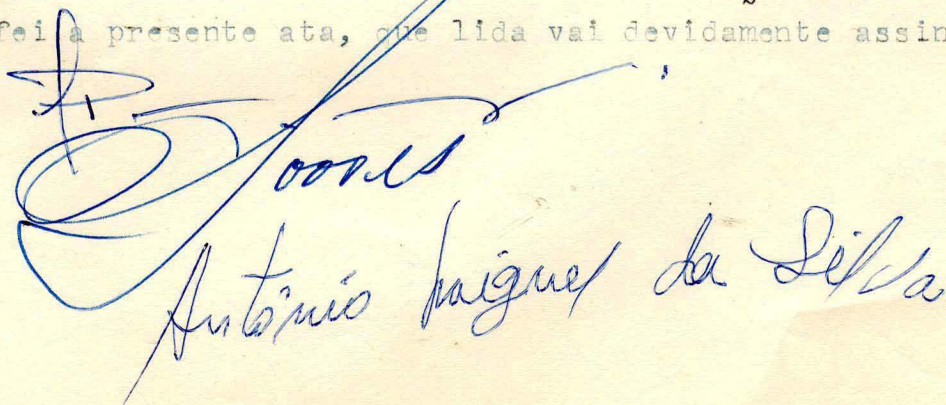 fei a presente ata, que lida vai devidamente assin
Antônio Miguel da Silva